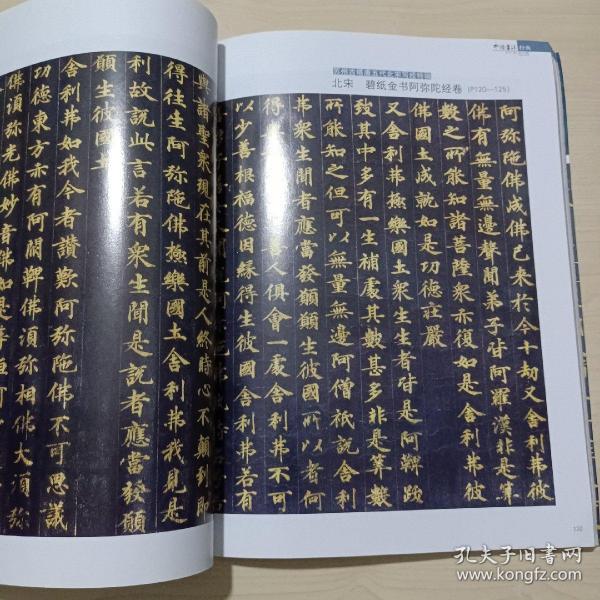 北宋 碧纸金书阿弥陀经卷(P120—125)
阿弥陀佛成佛已来於今十劫又舍利弗彼
佛有無量無邊聲聞弟子皆阿羅漢非是筭
數之所能知諸菩薩衆亦復如是舍利弗彼
佛國土成就如是功德荘嚴
又舍利弗極樂國土衆生生者皆是阿鞞跋
致其中多有一生補處其數甚多非是筭數
所能知之但可以無量無邊阿僧祇說舍利
弗衆生聞者應當發願願生彼國所以者何
得與 善人俱會一處舍利弗不可
以少善根福德因緣得生彼國舍利弗若有
與諸聖衆現在其前是人終時心不顛到即
得往生阿弥陀佛極樂國土舍利弗我見是
利故説此言若有衆生聞是説者應當發願
願生彼國土
舍利弗如我今者讃歎阿弥陀佛不可思議
功德東方亦有阿閦鞞佛湏弥相佛大湏弥
佛湏弥光佛妙音佛如是等恒河
孔夫子旧书网
www.kongfz.com